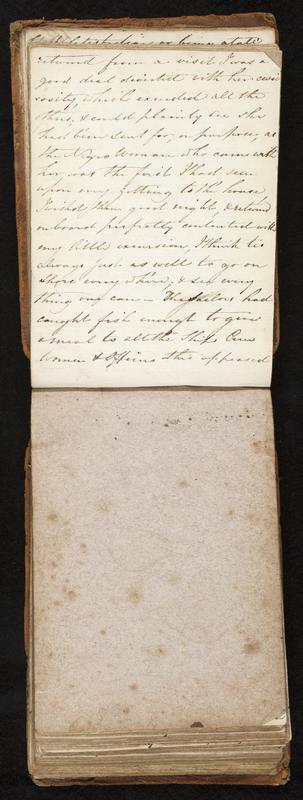 returned from a visit I was a
good deal diverted with her curi
osity, which exceeded all the
others, & could plainly see she
had been sent for, on purpose, as
the Negro Woman who came with
her was the first I had seen
upon my getting to the house
I wished them good night, & return'd
on board perfectly contented with
my little excursion, I think tis
always just as well to go on
shore every where, & see every
thing one can — The sailors had
caught fish enough to give
a meal to all the Ships Crew
Women & Officers this appeased